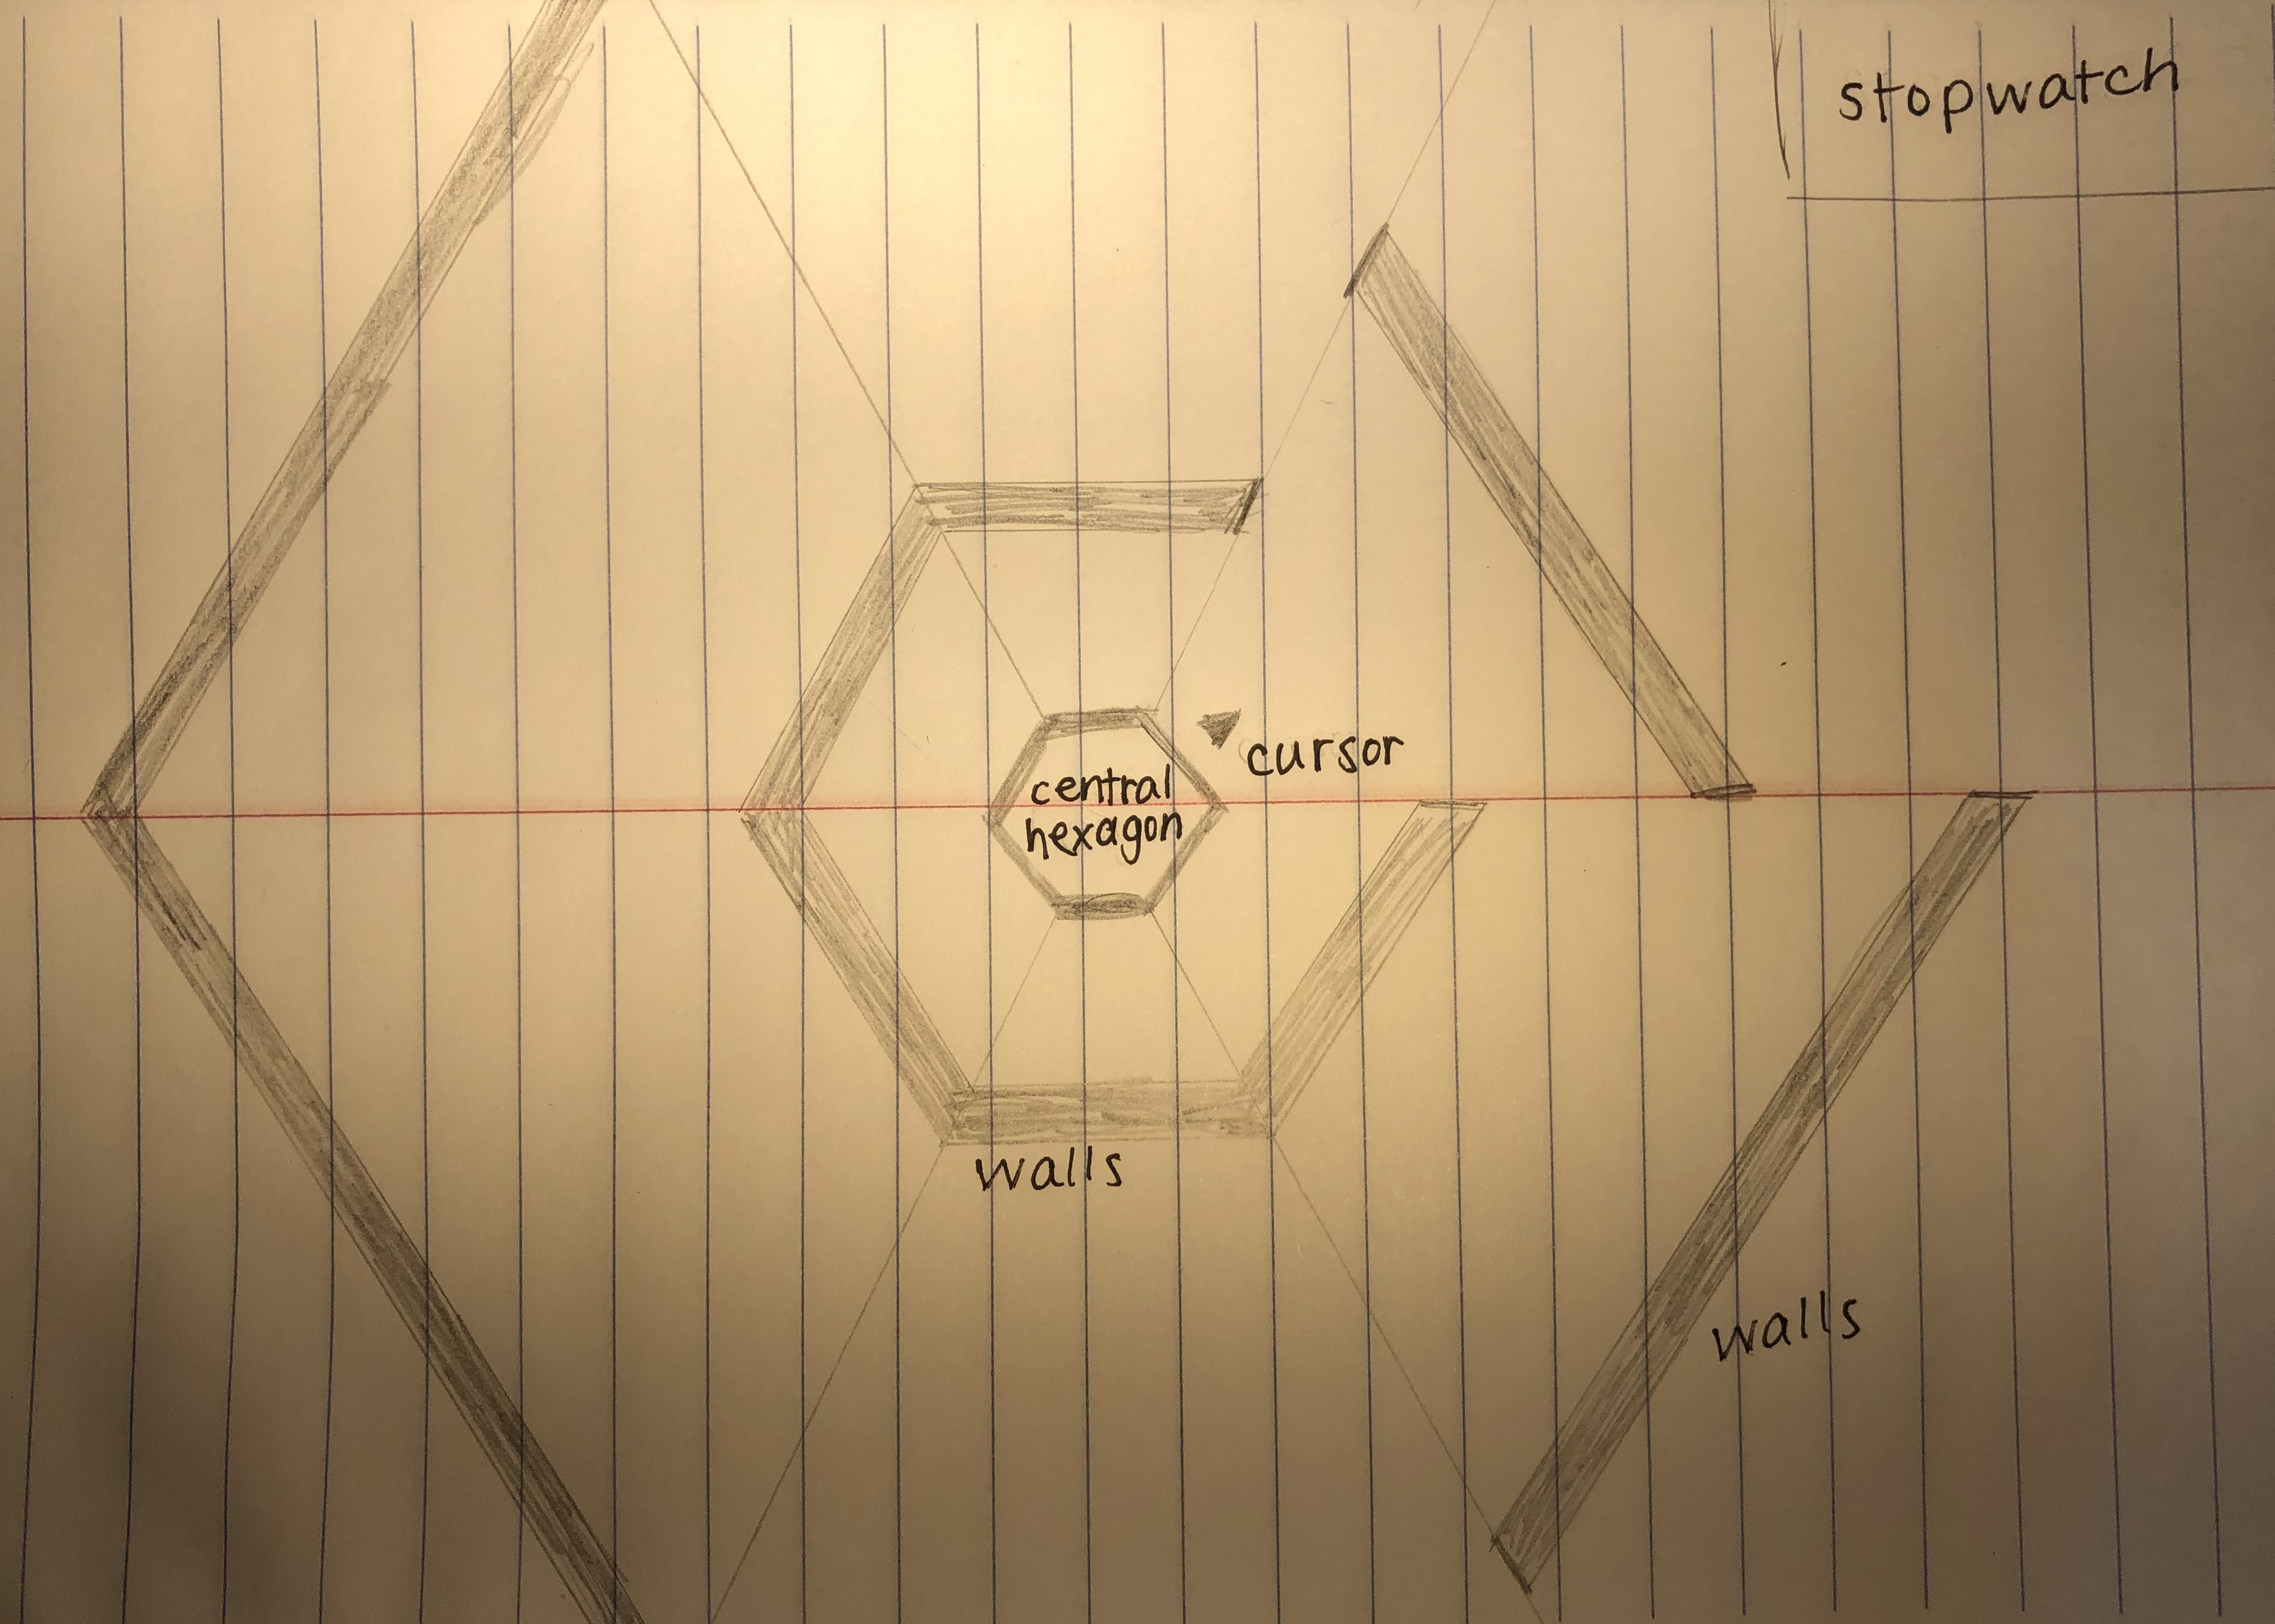 stopwatch
cursor
central
hexagon
walls
walls